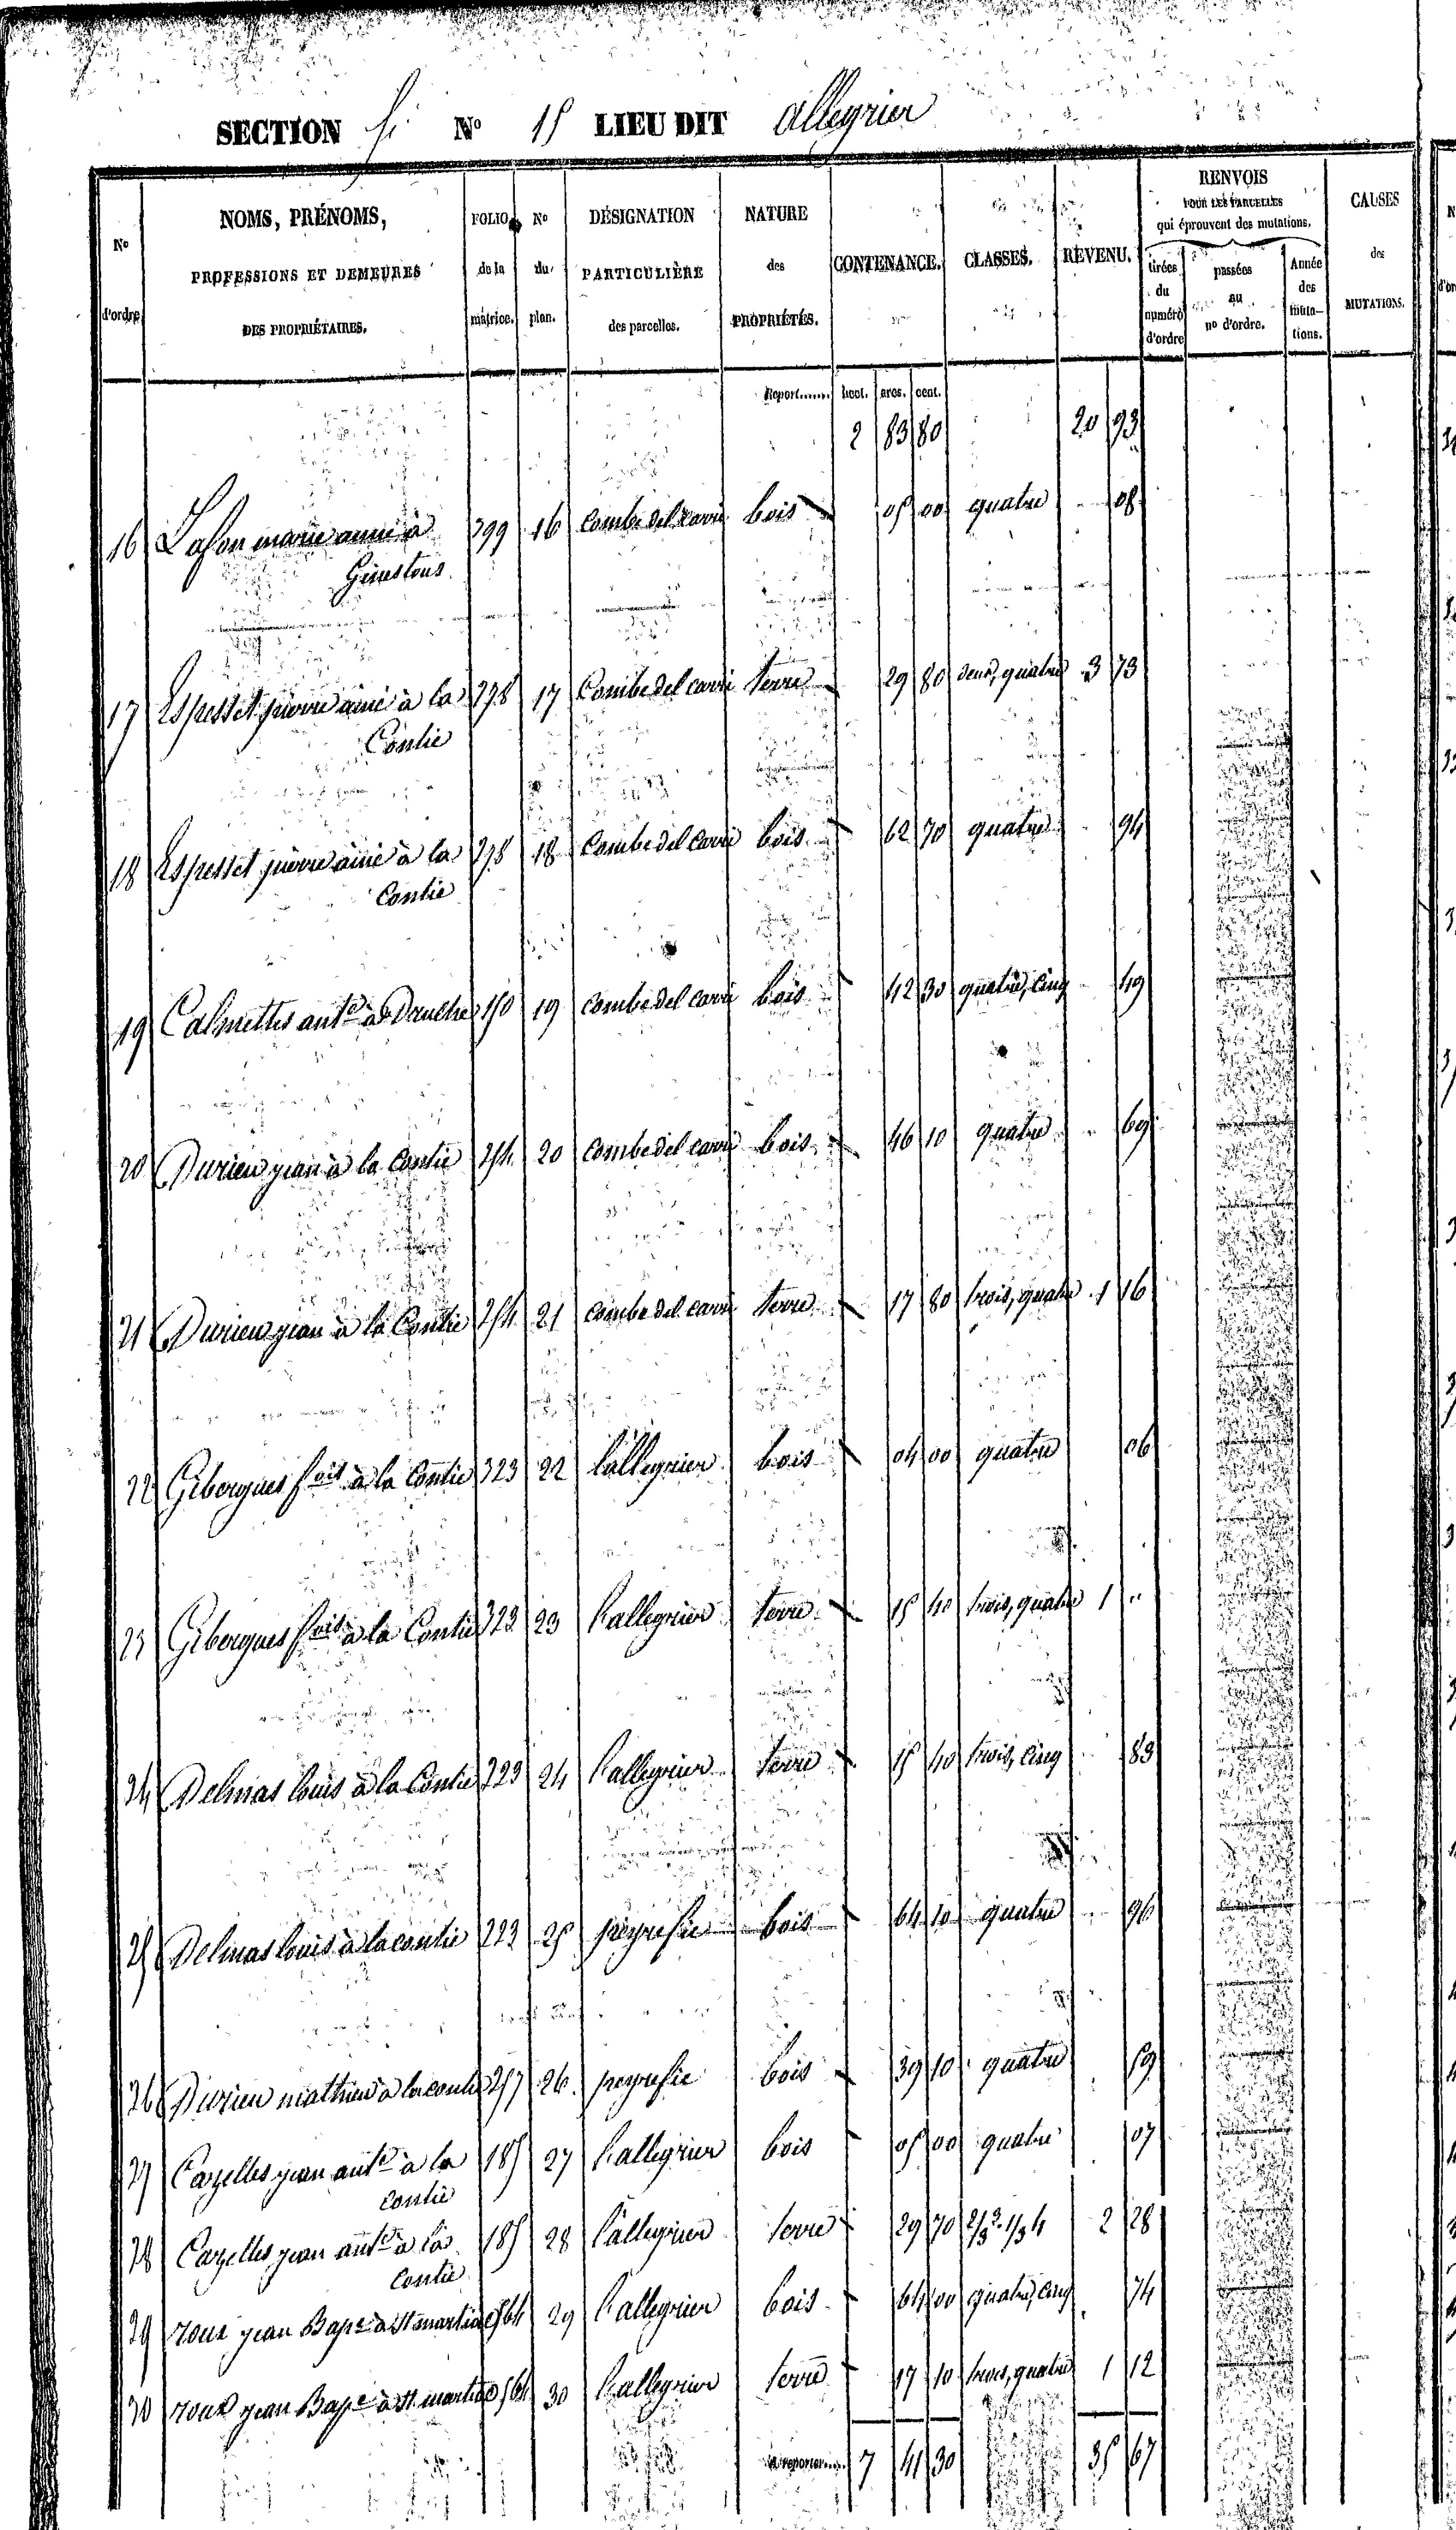 SECTION G. No 15 LIEU DIT allegrier
No d'ordre | NOMS, PRÉNOMS, PROFESSIONS ET DEMEURES DES PROPRIÉTAIRES. | FOLIO de la matrice. | No du plan. | DÉSIGNATION PARTICULIÈRE des parcelles. | NATURE des PROPRIÉTÉS. | CONTENANCE. | CLASSES. | REVENU. | RENVOIS POUR LES PARCELLES qui éprouvent des mutations. | tirées du numéro d'ordre | passées au no d'ordre. | Année des muta-tions. | CAUSES des MUTATIONS.
Report...... hect. ares. cent.
2 83 80 20 93
16 Lafon marie anne à 399 16 combe del carrié bois 05 00 quatre 08
Ginestous
17 Espesset pierre ainé à la 278 17 Combe del carrié terre 29 80 deux, quatre 3 73
Contie
18 Espesset pierre ainé à la 278 18 Combe del carrié bois 62 70 quatre 94
Contie
19 Calmettes ante à Druelhe 150 19 combe del carrié bois 42 30 quatre, cinq 49
20 Durieu jean à la Contie 254 20 combe del carrié bois 46 10 quatre 69
21 Durieu jean à la Contie 254 21 combe del carrié terre 17 80 trois, quatre 1 16
22 Gibergues fois à la Contie 323 22 l'allegrier bois 04 00 quatre 06
23 Gibergues fois à la Contie 323 23 l'allegrier terre 15 40 trois, quatre 1 "
24 Delmas louis à la Contie 223 24 l'allegrier terre 15 40 trois, cinq 83
25 Delmas louis à la contie 223 25 peyrefic bois 64 10 quatre 96
26 Durieu mathieu à la contie 257 26 peyrefic bois 39 10 quatre 59
27 Cazelles jean ante à la 185 27 l'allegrier bois 05 00 quatre 07
contie
28 Cazelles jean ante à la 185 28 l'allegrier terre 29 70 2/3 3. 1/3 4 2 28
Contie
29 roux jean Bapte à St martin 564 29 l'allegrier bois 64 00 quatre, cinq 74
30 roux jean Bapte à St martin 564 30 l'allegrier terre 17 10 trois, quatre 1 12
A reporter..... 7 41 30 35 67